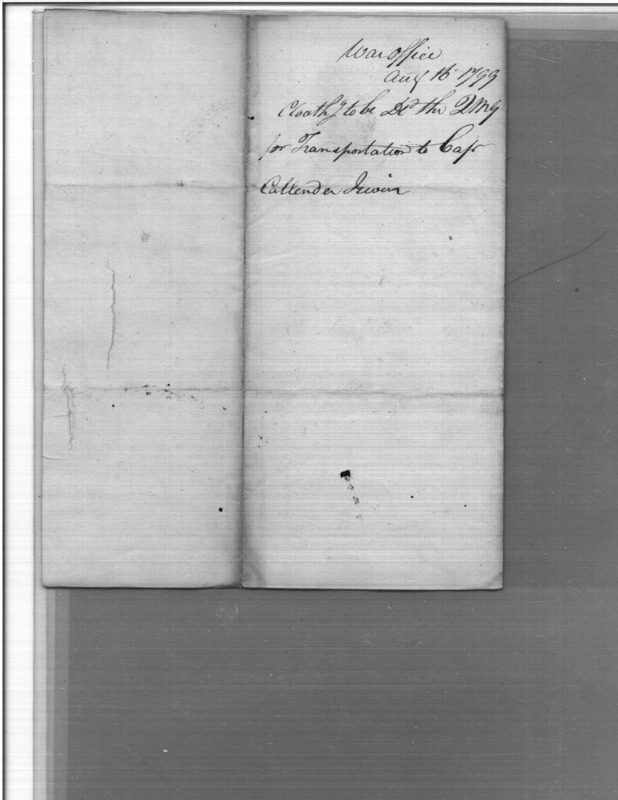 War Office
Aug 16 1799
Cloath.g to be Dd the QMG
for Transportation to Cap.
Callender Irwin